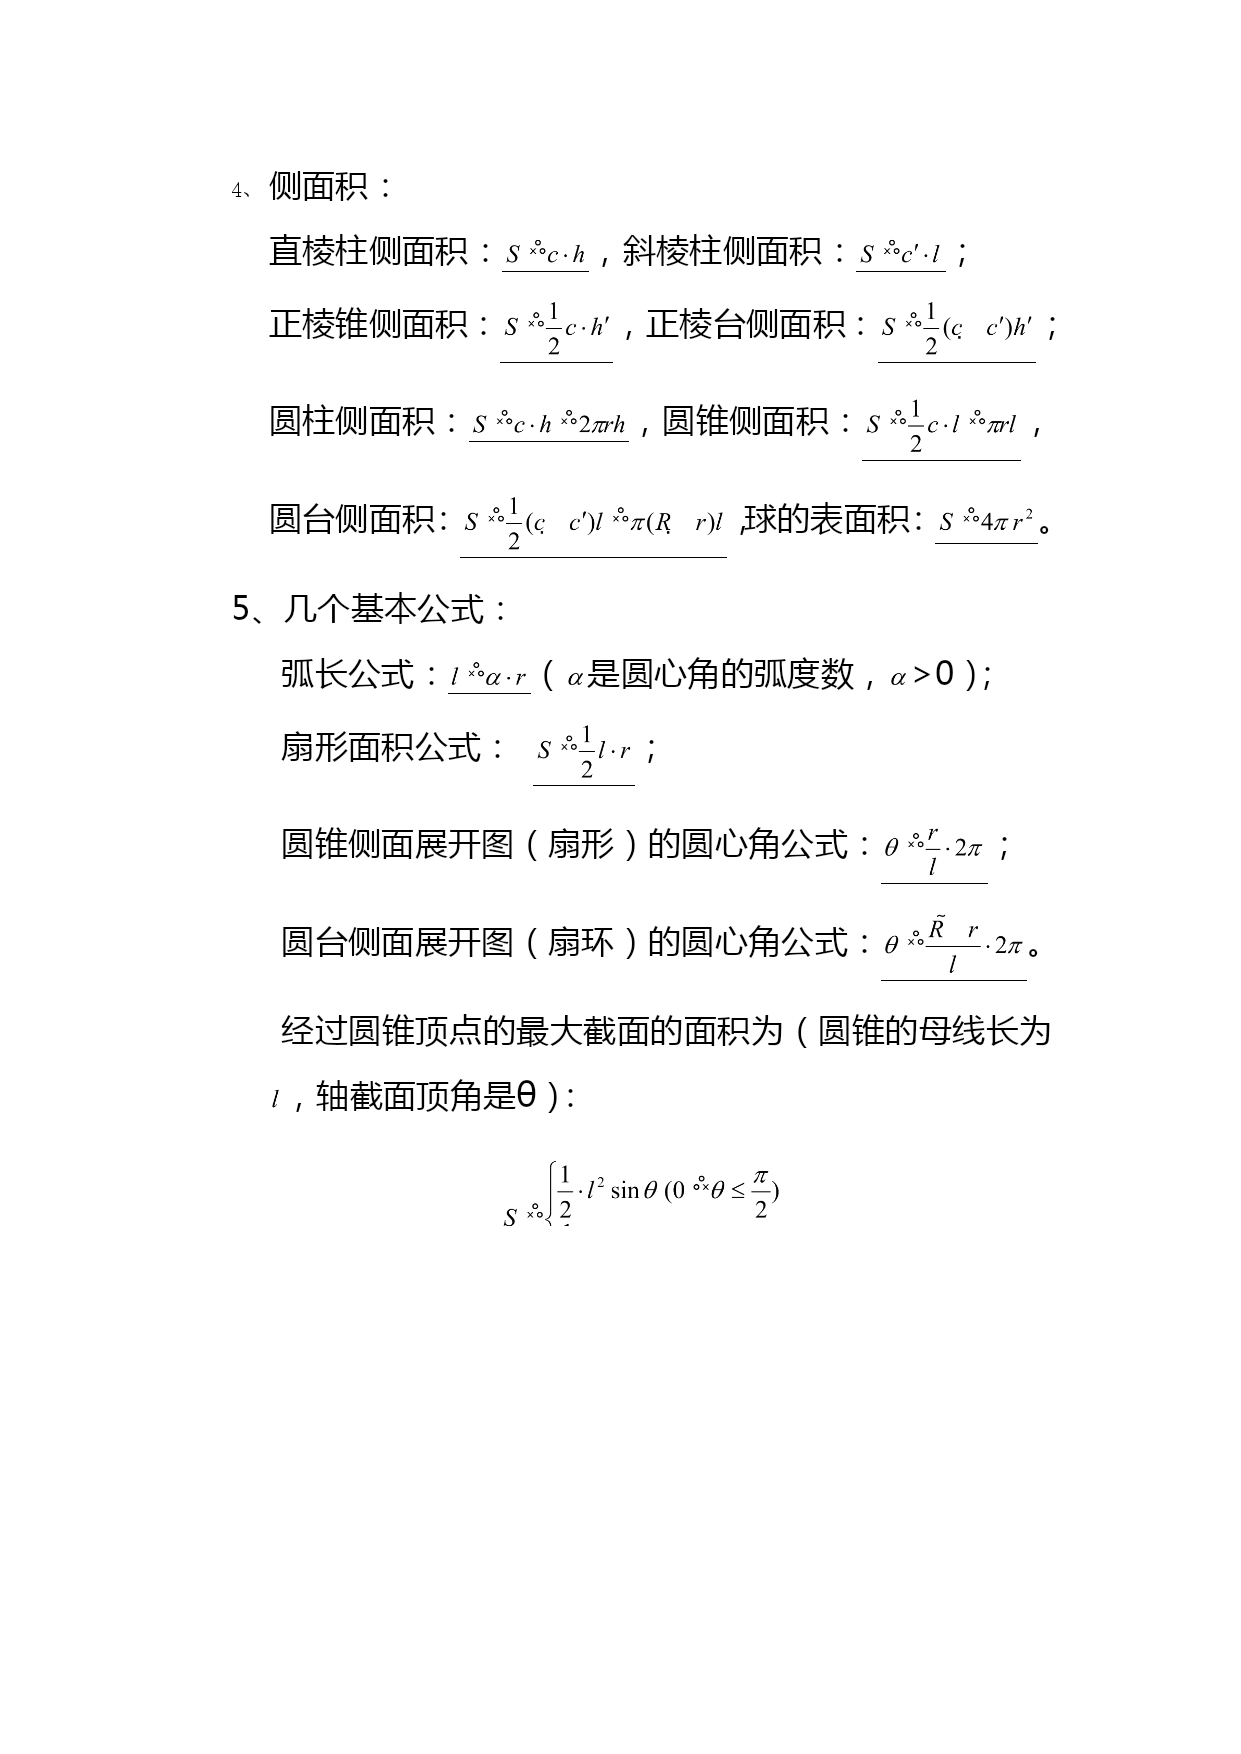 4、侧面积：
直棱柱侧面积：S = c·h，斜棱柱侧面积：S = c′·l；
正棱锥侧面积：S = 1/2 c·h′，正棱台侧面积：S = 1/2 (c  c′)h′；
圆柱侧面积：S = c·h = 2πrh，圆锥侧面积：S = 1/2 c·l = πrl，
圆台侧面积：S = 1/2 (c  c′)l = π(R  r)l，球的表面积：S = 4πr²。
5、几个基本公式：
弧长公式：l = α·r（α是圆心角的弧度数，α>0）；
扇形面积公式： S = 1/2 l·r；
圆锥侧面展开图（扇形）的圆心角公式：θ = r/l ·2π；
圆台侧面展开图（扇环）的圆心角公式：θ = (R ~ r)/l ·2π。
经过圆锥顶点的最大截面的面积为（圆锥的母线长为
l，轴截面顶角是θ）：
S = { 1/2 ·l² sinθ (0 < θ ≤ π/2)